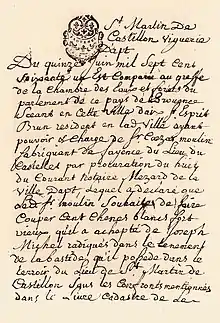 St Martin De
Castillon Viguerie
Dapt
Du quinze juin mil sept cent
Soixante un Est Comparu au greffe
de la Chambre des Eaux et forets du
parlement de ce pays de Provence
Seant en Cette Ville daix Sr Esprit
Brun resident en lad. Ville ayant
pouvoir et Charge de Sr Cezar moulin
fabriquant de fayence du Lieu du
Castellet par procuration du huit
du Courant Notaire Mezard de la
Ville Dapt, Lequel a declaré que
led. Sr moulin Souhaite de faire
Couper Cent Chenes blancs fort
vieux qu'il a achopté de Joseph
Michel radiqués dans le tenement
de la bastide qu'il possede dans le
terroir du Lieu de St Martin de
Castillon Sous les Confronts mentionnés
dans le Livre Cadastre de Le